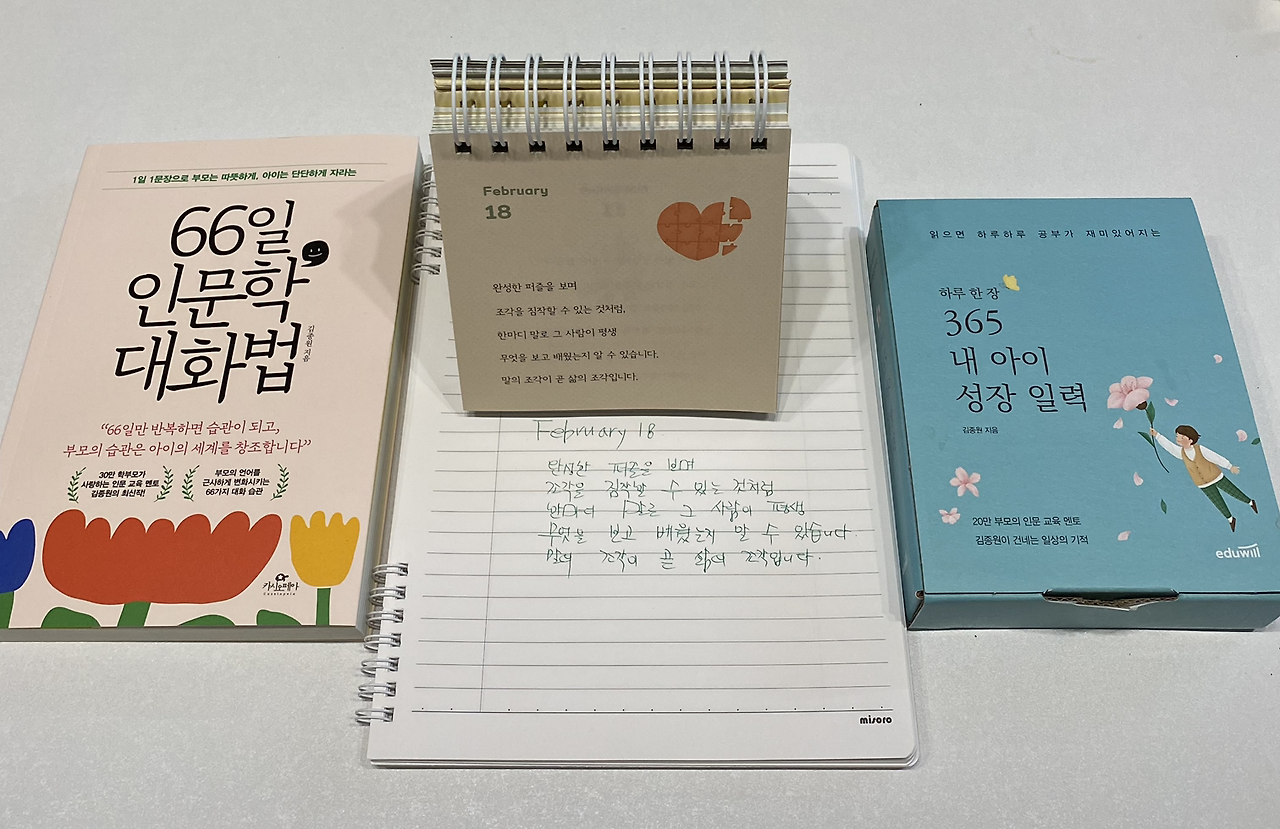 1일 1문장으로 부모는 따뜻하게, 아이는 단단하게 자라는
66일
인문학
대화법
김종원 지음
“66일만 반복하면 습관이 되고,
부모의 습관은 아이의 세계를 창조합니다”
30만 학부모가
사랑하는 인문 교육 멘토
김종원의 최신작!
부모의 언어를
근사하게 변화시키는
66가지 대화 습관
카시오페아
Cassiopeia
February
18
완성한 퍼즐을 보며
조각을 짐작할 수 있는 것처럼,
한마디 말로 그 사람이 평생
무엇을 보고 배웠는지 알 수 있습니다.
말의 조각이 곧 삶의 조각입니다.
February 18.
완성한 퍼즐을 보며
조각을 짐작할 수 있는 것처럼
한마디 말로 그 사람이 평생
무엇을 보고 배웠는지 알 수 있습니다.
말의 조각이 곧 삶의 조각입니다.
misoro
읽으면 하루하루 공부가 재미있어지는
하루 한 장
365
내 아이
성장 일력
김종원 지음
20만 부모의 인문 교육 멘토
김종원이 건네는 일상의 기적
eduwill